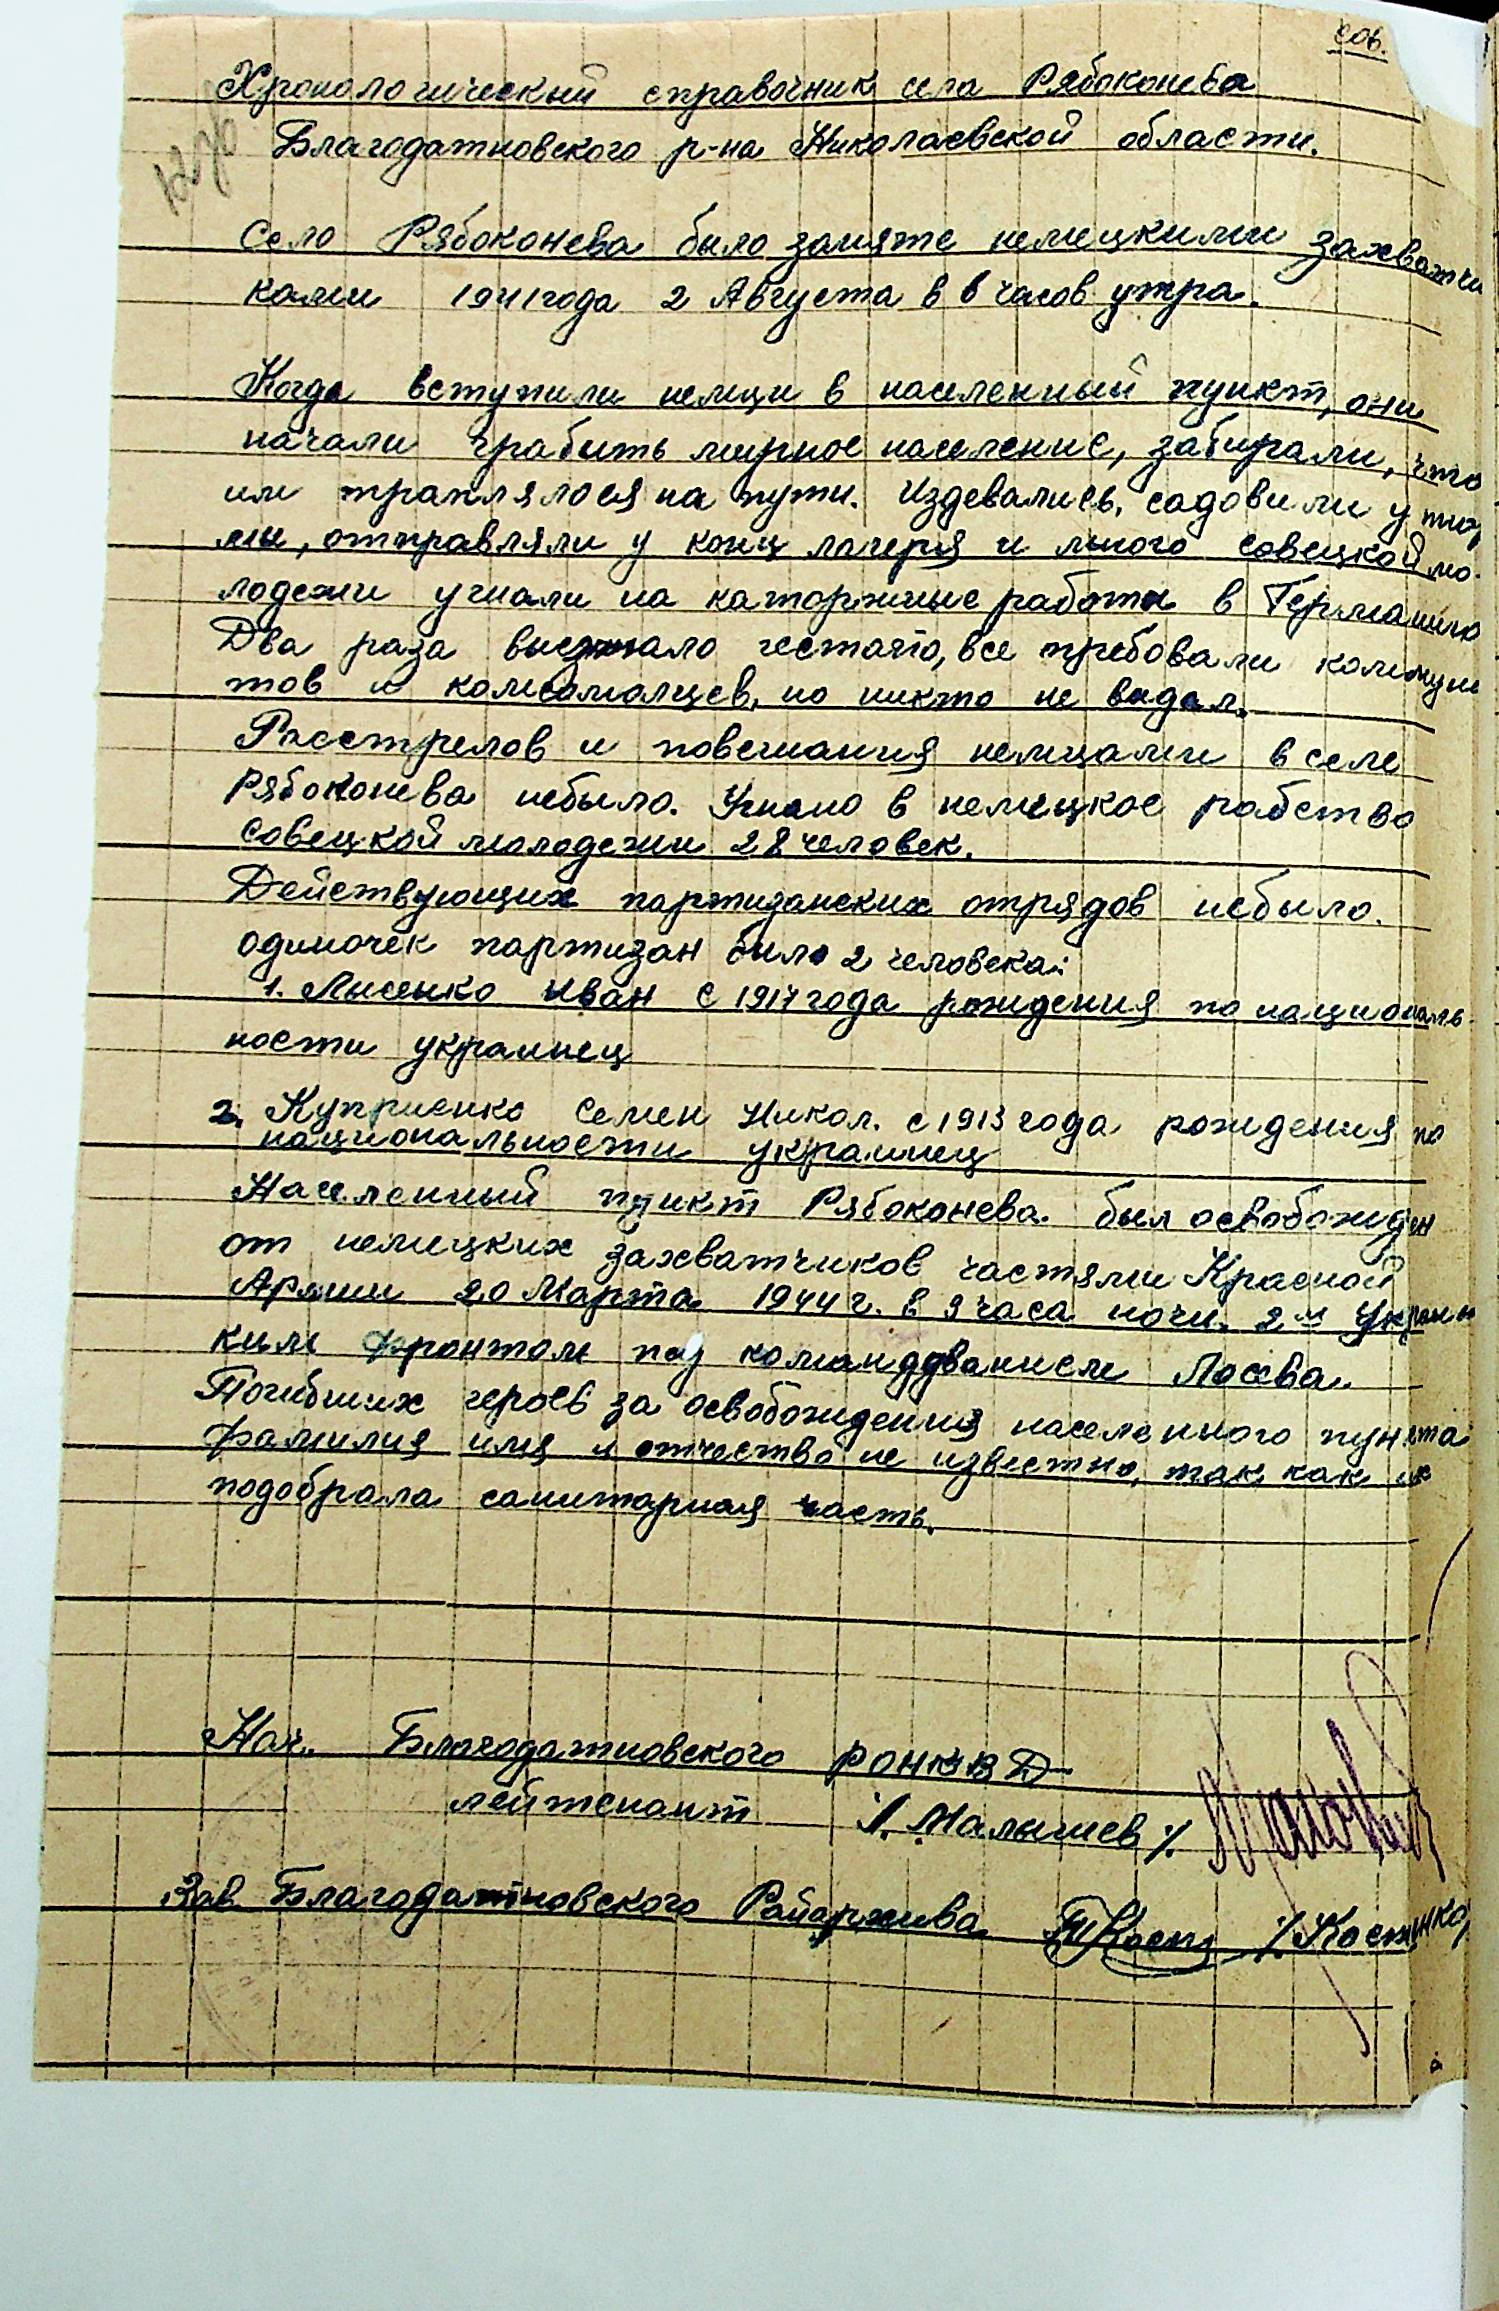 сов.
Хронологический справочник села Рябоконева
Благодатновского р-на Николаевской области.
Село Рябоконева было занято немецкими захватчи
ками 1941 года 2 Августа в 6 часов утра.
Когда вступили немци в населенный пункт, они
начали грабить мирное население, забирали, что
им траплялося на пути. Издевались, садовили у тюр
мы, отправляли у конц лагеря и много совецкой мо-
лодежи угнали на каторжные работы в Германию
Два раза выезжало гестапо, все требовали комуни
тов и комсомолцев, но никто не видал.
Расстрелов и повешания немцами в селе
Рябоконева небыло. Угнано в немецкое рабство
совецкой молодежи 28 человек.
Действующих партизанских отрядов небыло.
одиночек партизан было 2 человека:
1. Лысенко Иван с 1917 года рождения по националь-
ности украинец
2. Куприенко Семен Никол. с 1913 года рождения по
национальности украинец
Населенный пункт Рябоконева. был освобожден
от немецких захватчиков частями Красной
Армии 20 Марта 1944 г. в 3 часа ночи. 2м Украин
ким фронтом под командованием
Погибших героев за освобождения населенного пункта
фамилия имя и отчество не известно, так как их
подобрала санитарная часть.
Нач. Благодатновского РОНКВД
лейтенант /. Малышев /.
Зав. Благодатновского Райархива /. Костенко/